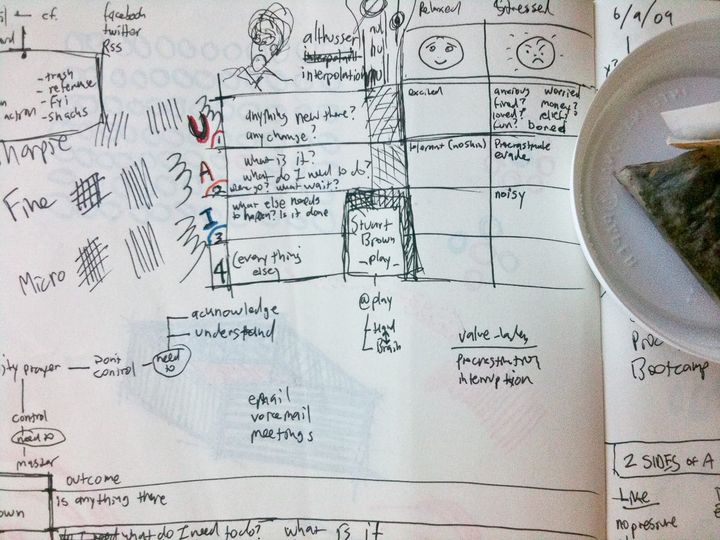 cf.
facebook
twitter
RSS
- trash
- reference
- Fri
- snacks
action
althusser
interpolation
nul
nul
nul
Relaxed
Stressed
6/9/09
excited
anxious worried
fired? money?
loved? relief?
fun? bored
U
1
anything new there?
any change?
tolerant (noskin)
Procrastinate
evade
A
2
what is it?
what do I need to do?
noisy
I
3
what else needs
to happen? Is it done
4
(everything
else)
Stuart
Brown
- play -
sharpie
Fine
Micro
@play
Hand
Brain
acknowledge
understand
need to
Don't
control
ity prayer
control
need to
master
value-laden
procrastination
interruption
email
voicemail
meetings
Bootcamp
2 SIDES OF A
Like
no pressure
outcome
is anything there
own
what do I need to do? what is it